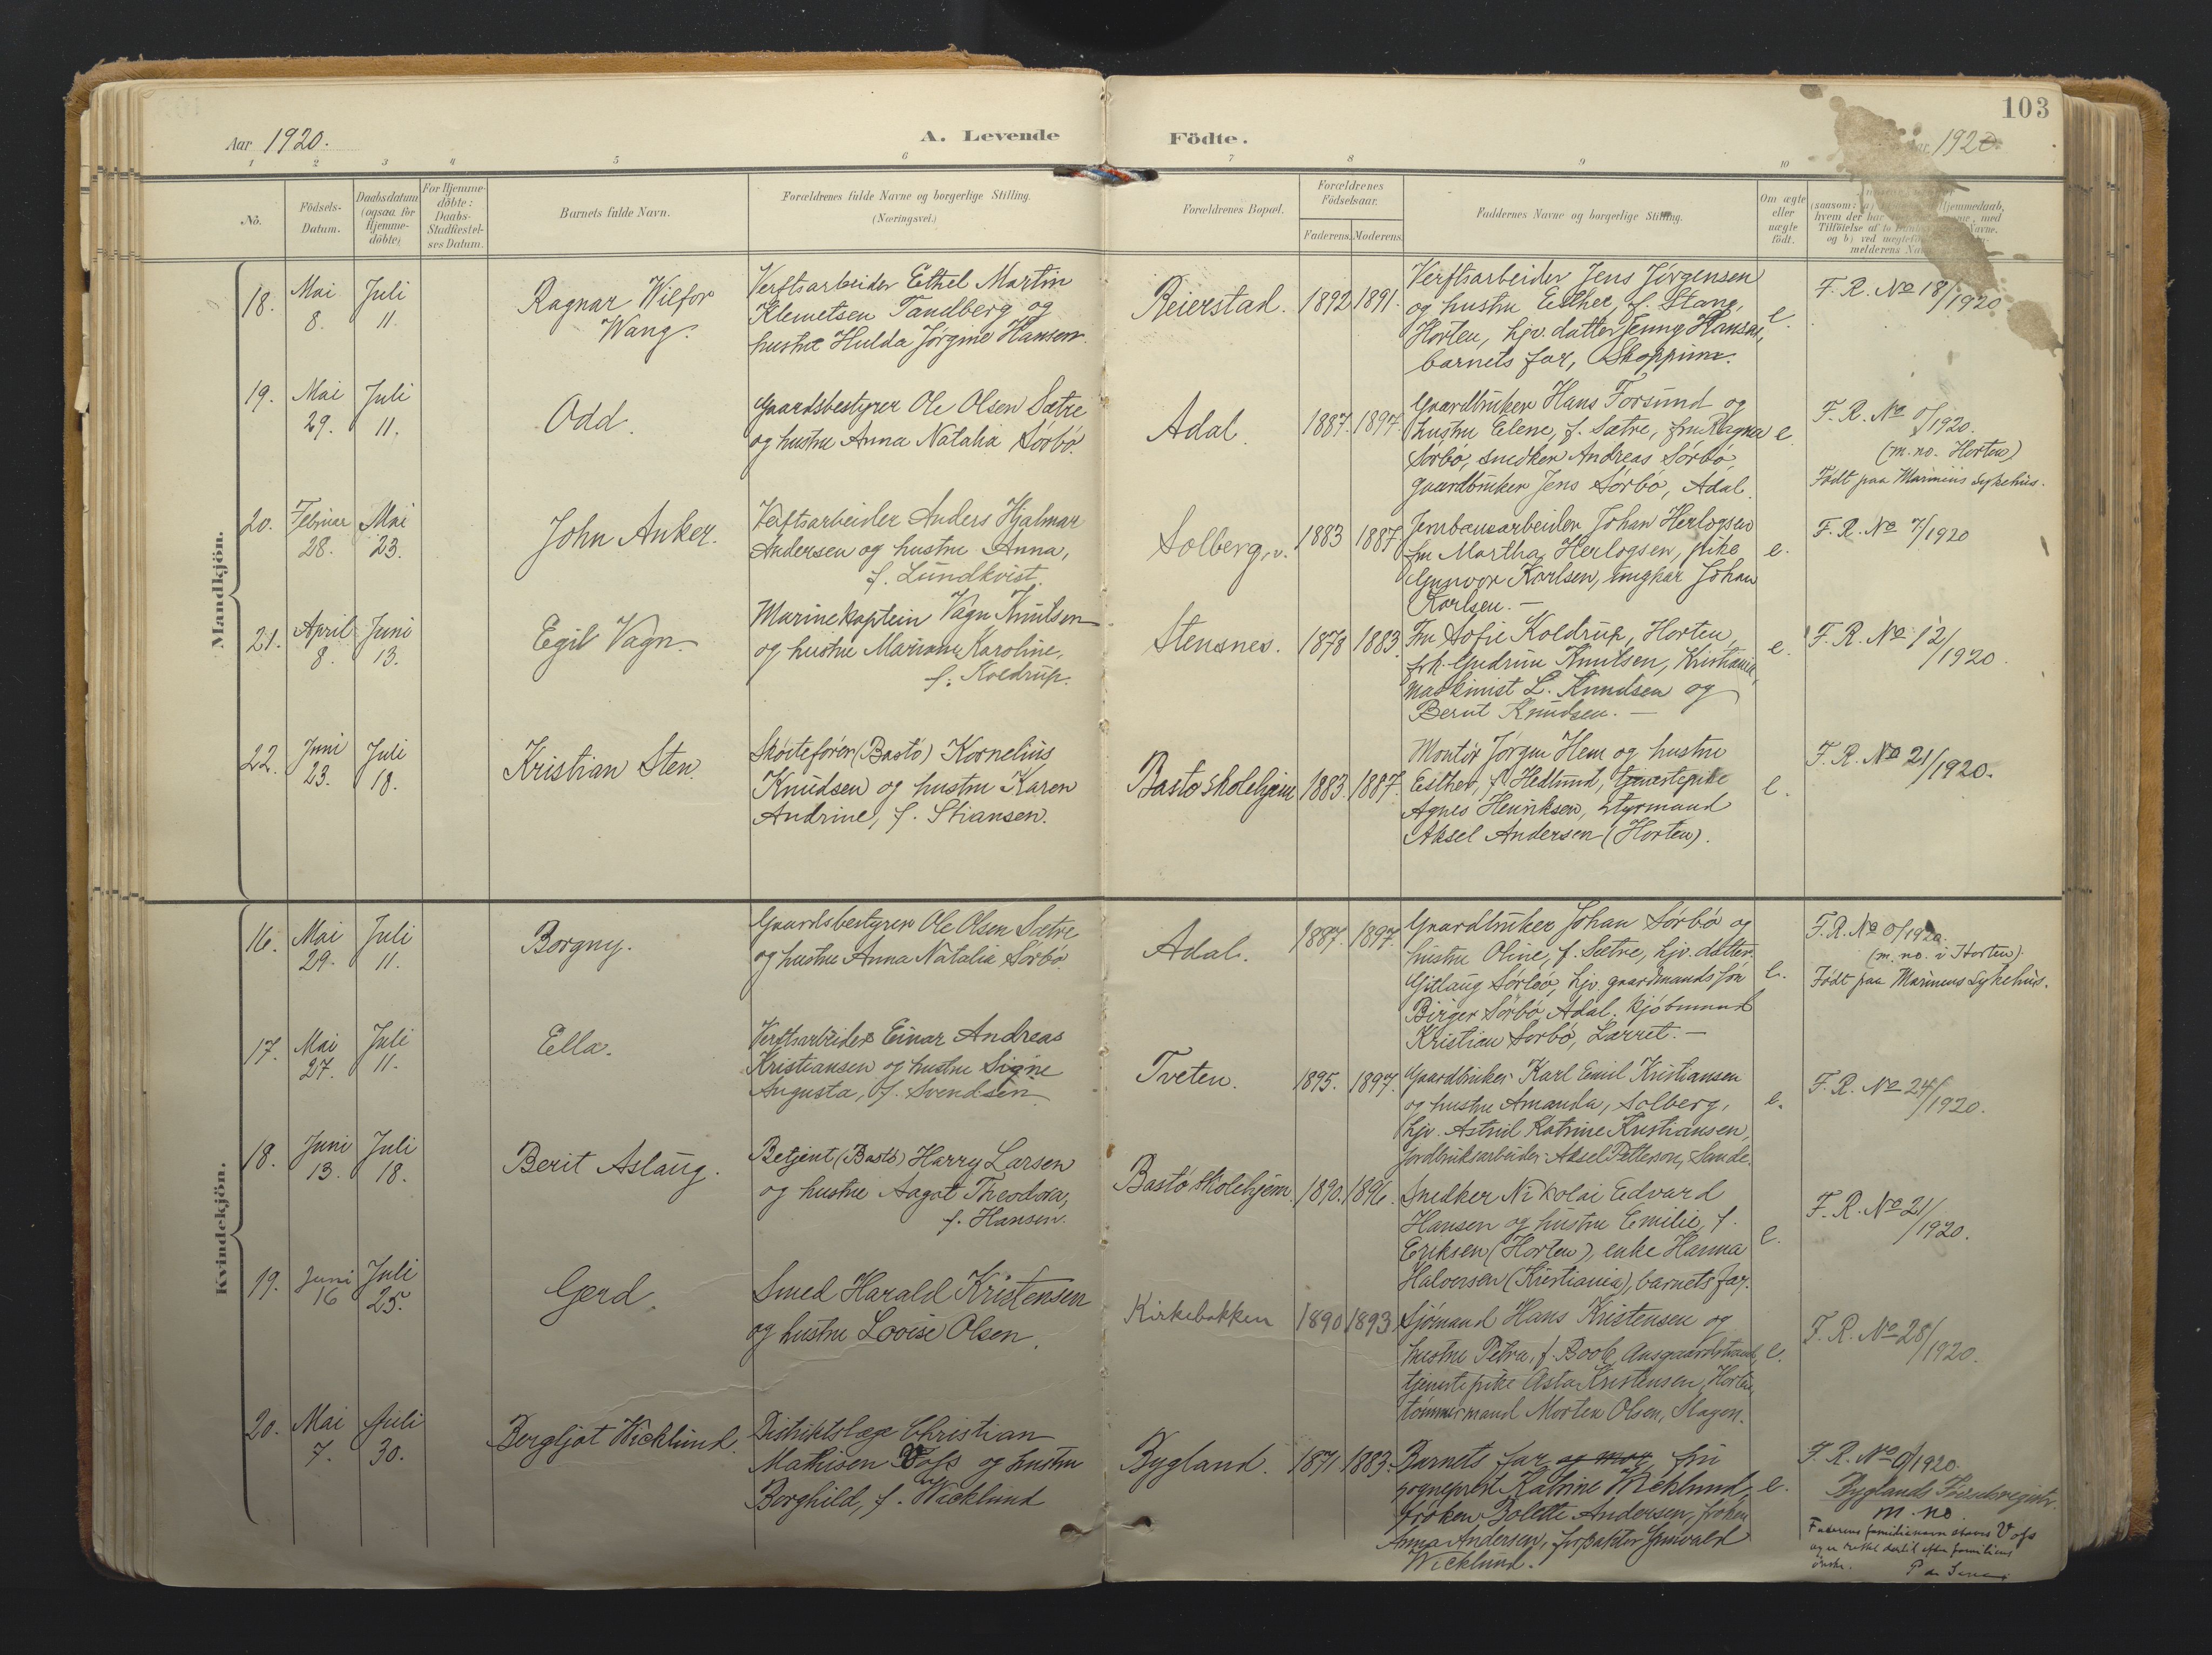 103
Aar 1920.
A. Levende
Födte.
Aar 1920.
1 2 3 4 5 6 7 8 9 10
No.
Födsels-
Datum.
Daabsdatum
(ogsaa for
Hjemme-
döbte)
For Hjemme-
döbte:
Daabs-
Stadfæstel-
ses Datum.
Barnets fulde Navn.
Forældrenes fulde Navne og borgerlige Stilling.
(Næringsvei.)
Forældrenes Bopæl.
Forældrenes
Födselsaar.
Faderens. Moderens.
Faddernes Navne og borgerlige Stilling.
Om ægte
eller
uægte
födt.
(saasom: a)
Hjemmedaab,
hvem der har
med
Tilföielse af to
Navne.
og b) ved uægte
melderens
Mandkjön.
18.
Mai
8.
Juli
11.
Ragnar Wilfor
Wang.
Verftsarbeider Ethel Martin
Klemetsen Tandberg og
hustru Hulda Jørgine Hansen.
Reierstad.
1892 1891.
Verftsarbeider Jens Jörgensen
og hustru Esther, f. Stang,
Horten, hjv. datter Jenny Hansen,
barnets far, Skoppum.
e.
F. R. No 18/1920
19.
Mai
29.
Juli
11.
Odd.
Gaardsbestyrer Ole Olsen Sætre
og hustru Anna Natalia Sörbö.
Adal.
1887. 1897.
Gaardbruker Hans Torsund og
hustru Elene, f. Sætre, fru Ragna
Sörbö, snedker Andreas Sörbö,
gaardbruker Jens Sörbö, Adal.
e.
F. R. No 0/1920.
(m. no. Horten)
Födt paa Marinens Sykehus.
20.
Februar
28.
Mai
23.
John Anker.
Verftsarbeider Anders Hjalmar
Andersen og hustru Anna,
f. Lundkvist.
Solberg, v.
1883 1887
Jernbanearbeider Johan Herlogsen
fru Martha Herlogsen, pike
Gunvor Karlsen, ungkar Johan
Karlsen. –
e.
F. R. No 7/1920
21.
April
8.
Juni
13.
Egil Vagn.
Marinekaptein Vagn Knudsen
og hustru Marianne Karoline,
f. Koldrup.
Stensnes.
1878 1883.
Fru Sofie Koldrup, Horten,
frk. Gudrun Knutsen, Kristiania,
maskinist L. Knudsen og
Berut Knudsen. –
e.
F. R. No 12/1920.
22.
Juni
23.
Juli
18.
Kristian Sten.
Skøitefører (Bastö) Kornelius
Knudsen og hustru Karen
Andrine, f. Stiansen.
Bastö skolehjem
1883. 1887.
Montör Jörgen Hem og hustru
Esther, f. Hedlund, tjenestepike
Agnes Henriksen, styrmand
Aksel Andersen (Horten).
e.
F. R. No 21/1920.
Kvindekjön.
16.
Mai
29.
Juli
11.
Borgny.
Gaardsbestyrer Ole Olsen Sætre
og hustru Anna Natalia Sörbö.
Adal.
1887. 1897.
Gaardbruker Johan Sörbö og
hustru Oline, f. Sætre, hjv. datter
Gitlaug Sörbö, hjv. gaardmands sön
Birger Sörbö, Adal. Kjöbmand
Kristian Sorbö, Larret. –
e.
F. R. No 0/1920.
(m. no. i Horten).
Födt paa Marinens Sykehus.
17.
Mai
27.
Juli
11.
Ella.
Verftsarbeider Einar Andreas
Kristiansen og hustru Signe
Augusta, f. Svendsen.
Tveten.
1895. 1897.
Gaardbruker Karl Emil Kristiansen
og hustru Amanda, Solberg,
hjv. Astrid Katrine Kristiansen,
jordbruksarbeider Aksel Petterson, Sande.
e.
F. R. No 24/1920.
18.
Juni
13.
Juli
18.
Berit Aslaug.
Betjent (Bastö) Harry Larsen
og hustru Aagot Theodora,
f. Hansen.
Bastö skolehjem.
1890. 1896.
Snedker Nikolai Edvard
Hansen og hustru Emilie, f.
Eriksen (Horten), enke Hanna
Halvorsen (Kristiania), barnets far.
e.
F. R. No 21/1920.
19.
Juni
16
Juli
25.
Gerd.
Smed Harald Kristensen
og hustru Lovise Olsen.
Kirkebakken
1890 1893
Sjömand Hans Kristensen og
hustru Petra, f. Book, Aasgaardstrand,
tjenestepike Asta Kristensen, Horten,
tömmermand Morten Olsen, Slagen.
e.
F. R. No 28/1920.
20.
Mai
7.
Juli
30.
Bergljot Wicklund.
Distriktslæge Christian
Mathisen Voss og hustru
Borghild, f. Wicklund
Bygland.
1871 1883.
Barnets far og mor, fru
sogneprest Katrine Wicklund,
fröken Bolette Andersen, fröken
Anna Andersen, forpakter Gunvald
Wicklund.
e.
F. R. No 0/1920.
Byglands Födselsregister.
m. no.
Faderens familienavn staves Voss
og er rettet dertil efter familiens
önske.